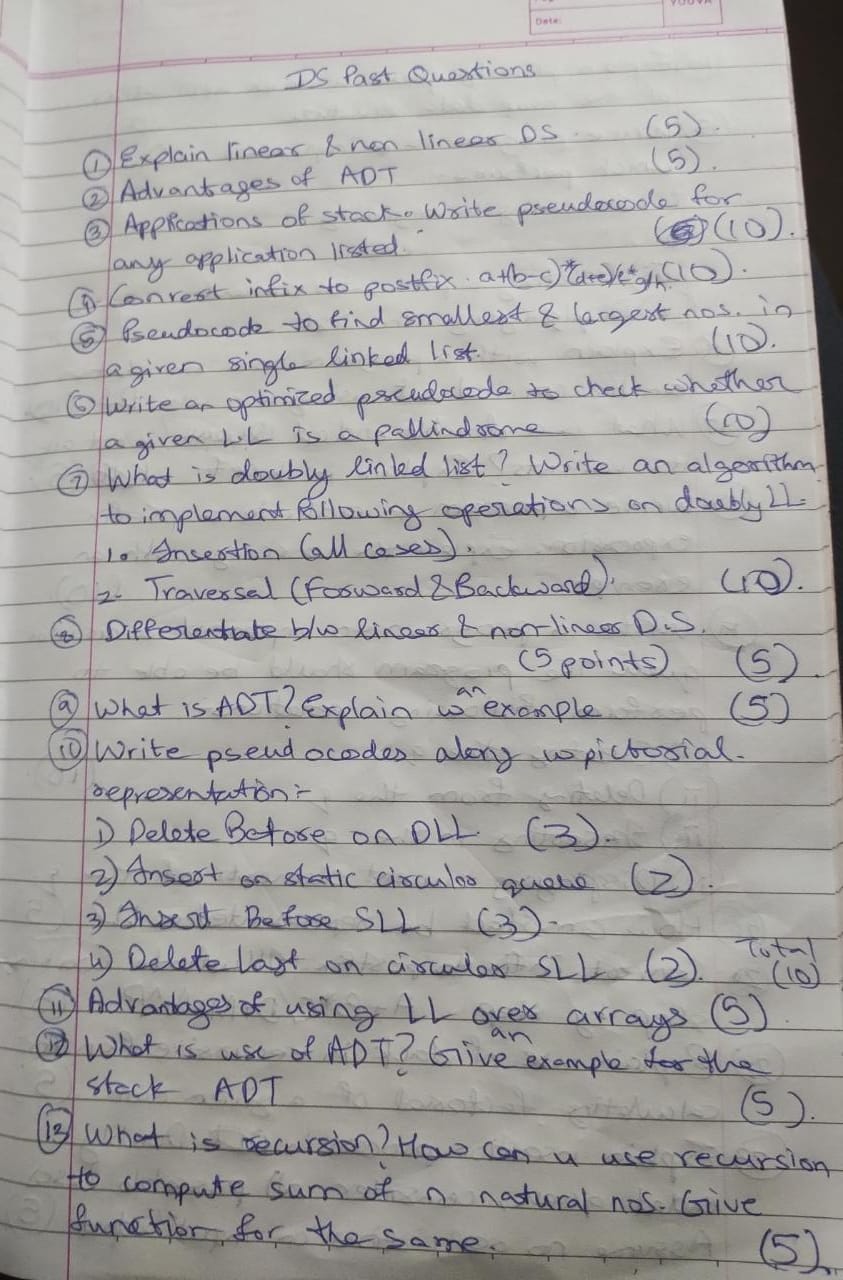 YOUVA
Date:
DS Past Questions
① Explain linear & non linear DS. (5).
② Advantages of ADT (5).
③ Applications of stack. Write pseudocode for
any application listed. (10).
④ Convert infix to postfix. a+(b-c)*(d+e)/ (10).
⑤ Pseudocode to find smallest & largest nos. in
a given single linked list. (10).
⑥ Write an optimized pseudocode to check whether
a given L.L is a pallindrome (10)
⑦ What is doubly linked list? Write an algorithm
to implement following operations on doubly LL
1. Insertion (all cases).
2. Traversal (Forward & Backward). (10).
⑧ Differentiate b/w linear & non-linear D.S.
(5 points) (5)
⑨ What is ADT? Explain w an example (5)
⑩ Write pseudocodes along w pictorial-
representation:-
1) Delete Before on DLL. (3).
2) Insert on static circular queue (2).
3) Insert Before SLL (3).
4) Delete last on circular SLL (2). Total (10)
⑪ Advantages of using LL over arrays (5)
⑫ What is use of ADT? Give an example for the
stack ADT (5).
⑬ What is recursion? How can u use recursion
to compute sum of n natural nos. Give
function for the same. (5)